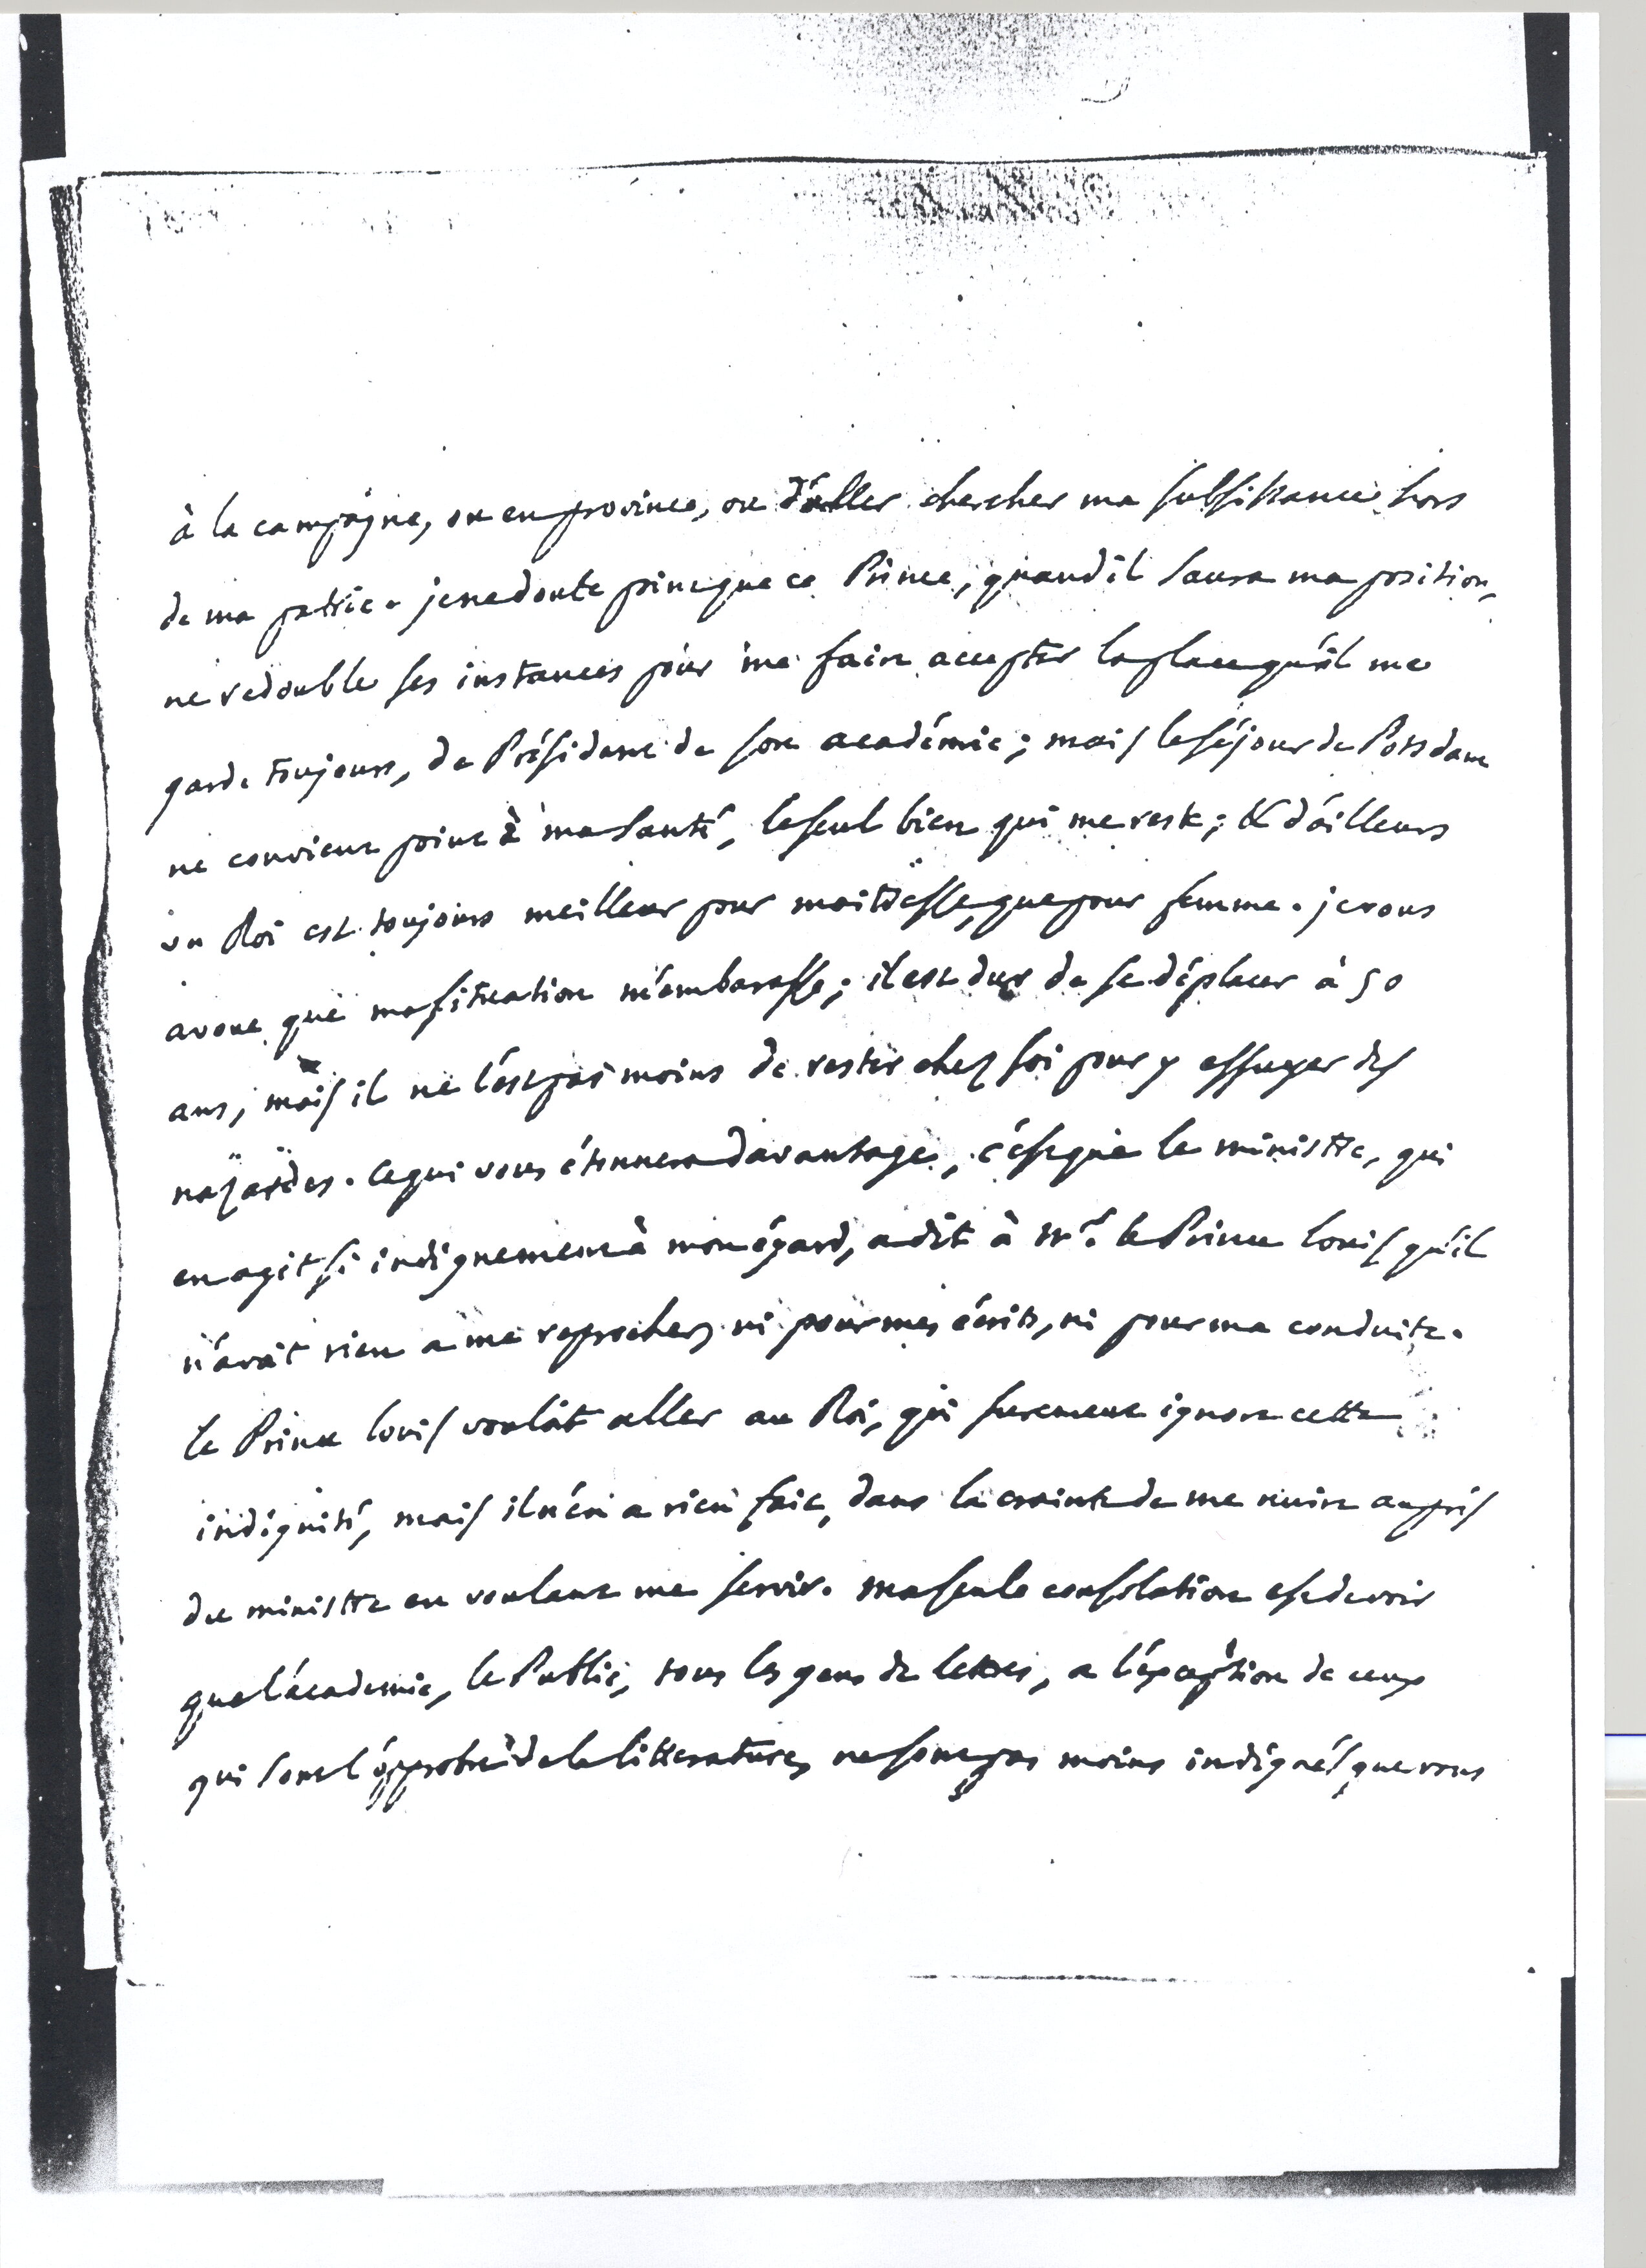 à la campagne, ou en province, ou d'aller chercher ma subsistance hors
de ma patrie. je ne doute point que ce Prince, quand il saura ma position,
ne redouble ses instances pour me faire accepter la place qu'il me
garde toujours, de Président de son académie; mais le séjour de Potsdam
ne convient point à ma santé, le seul bien qui me reste; & d'ailleurs
un Roi est toujours meilleur pour maitresse, que pour femme. je vous
avoue que ma situation m'embarasse; il est dur de se déplacer à 50
ans, mais il ne l'est pas moins de rester chez soi pour y essuyer des
nazardes. ce qui vous étonnera davantage, c'est que le ministre, qui
en agit si indignement à mon égard, a dit à Mr. le Prince Louis qu'il
n'avait rien a me reprocher, ni pour mes écrits, ni pour ma conduite.
le Prince Louis voulait aller au Roi, qui surement ignore cette
indignité, mais il n'en a rien fait, dans la crainte de me nuire auprès
du ministre en voulant me servir. ma seule consolation est de voir
que l'académie, le Public, tous les gens de lettres, a l'exception de ceux
qui sont l'opprobre de la litterature, ne sont pas moins indignés que vous